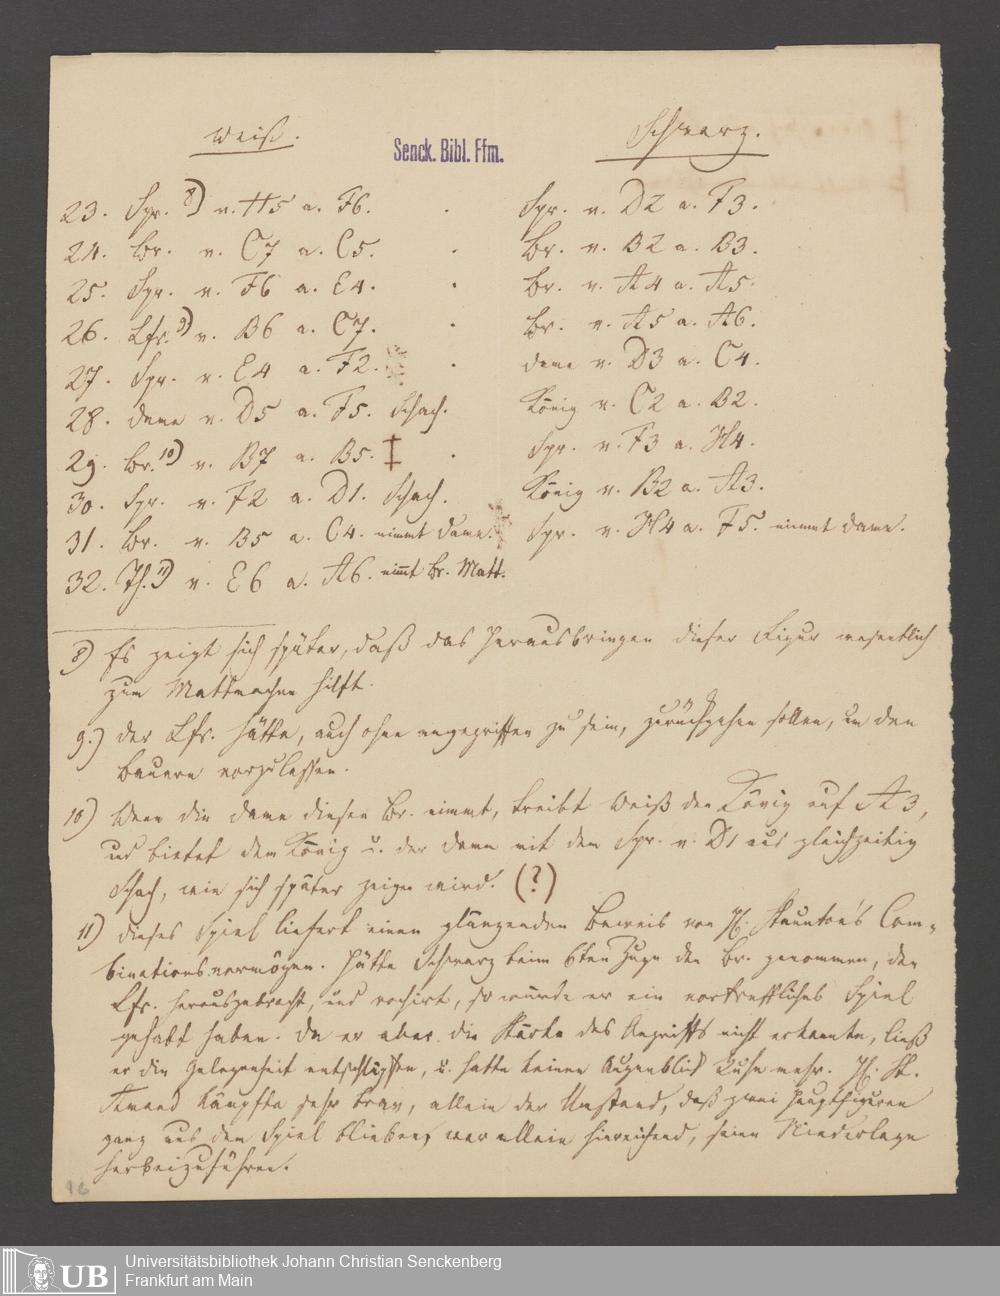 Weiß.
Schwarz.
Senck. Bibl. Ffm.
23. Spr. 8) v. H5 a. F6. . Spr. v. D2 a. F3.
24. Br. v. C7 a. C5. . Br. v. B2 a. B3.
25. Spr. v. F6 a. E4. . Br. v. A4 a. A5.
26. Lfr. 9) v. B6 a. C7. . Br. v. A5 a. A6.
27. Spr. v. E4 a. F2. . Dame v. D3 a. C4.
28. Dame v. D5 a. F5. Schach. König v. C2 a. B2.
29. Br. 10) v. B7 a. B5. ‡ . Spr. v. F3 a. H4.
30. Spr. v. F2 a. D1. Schach. König v. B2 a. A3.
31. Br. v. B5 a. C4. nimmt Dame. Spr. v. H4 a. F5. nimmt Dame.
32. Th. 11) v. E6 a. A6. nimmt Br. Matt.
8) Es zeigt sich später, daß das Herausbringen dieser Figur wesentlich
zum Mattmachen hilft.
9.) Der Lfr. hätte, auch ohne angegriffen zu sein, zurückgehen sollen, um den
Bauern vorzulassen.
10) Wenn die Dame diesen Br. nimmt, treibt Weiß den König auf A3,
und bietet dem König u. der Dame mit dem Spr. v. D1 aus gleichzeitig
Schach, wie sich später zeigen wird. (?)
11) Dieses Spiel liefert einen glänzenden Beweis von H. Staunton's Com-
binationsvermögen. Hätte Schwarz beim 6ten Zuge den Br. genommen, den
Lfr. herausgebracht, und rochirt, so würde er ein vortreffliches Spiel
gehabt haben. Da er aber die Stärke des Angriffs nicht erkannte, ließ
er die Gelegenheit entschlüpfen, u. hatte keinen Augenblick Ruhe mehr. H. St.
Amand kämpfte sehr brav, allein der Umstand, daß zwei Hauptfiguren
ganz aus dem Spiel blieben, war allein hinreichend, seine Niederlage
herbeizuführen.
16
UB
Universitätsbibliothek Johann Christian Senckenberg
Frankfurt am Main